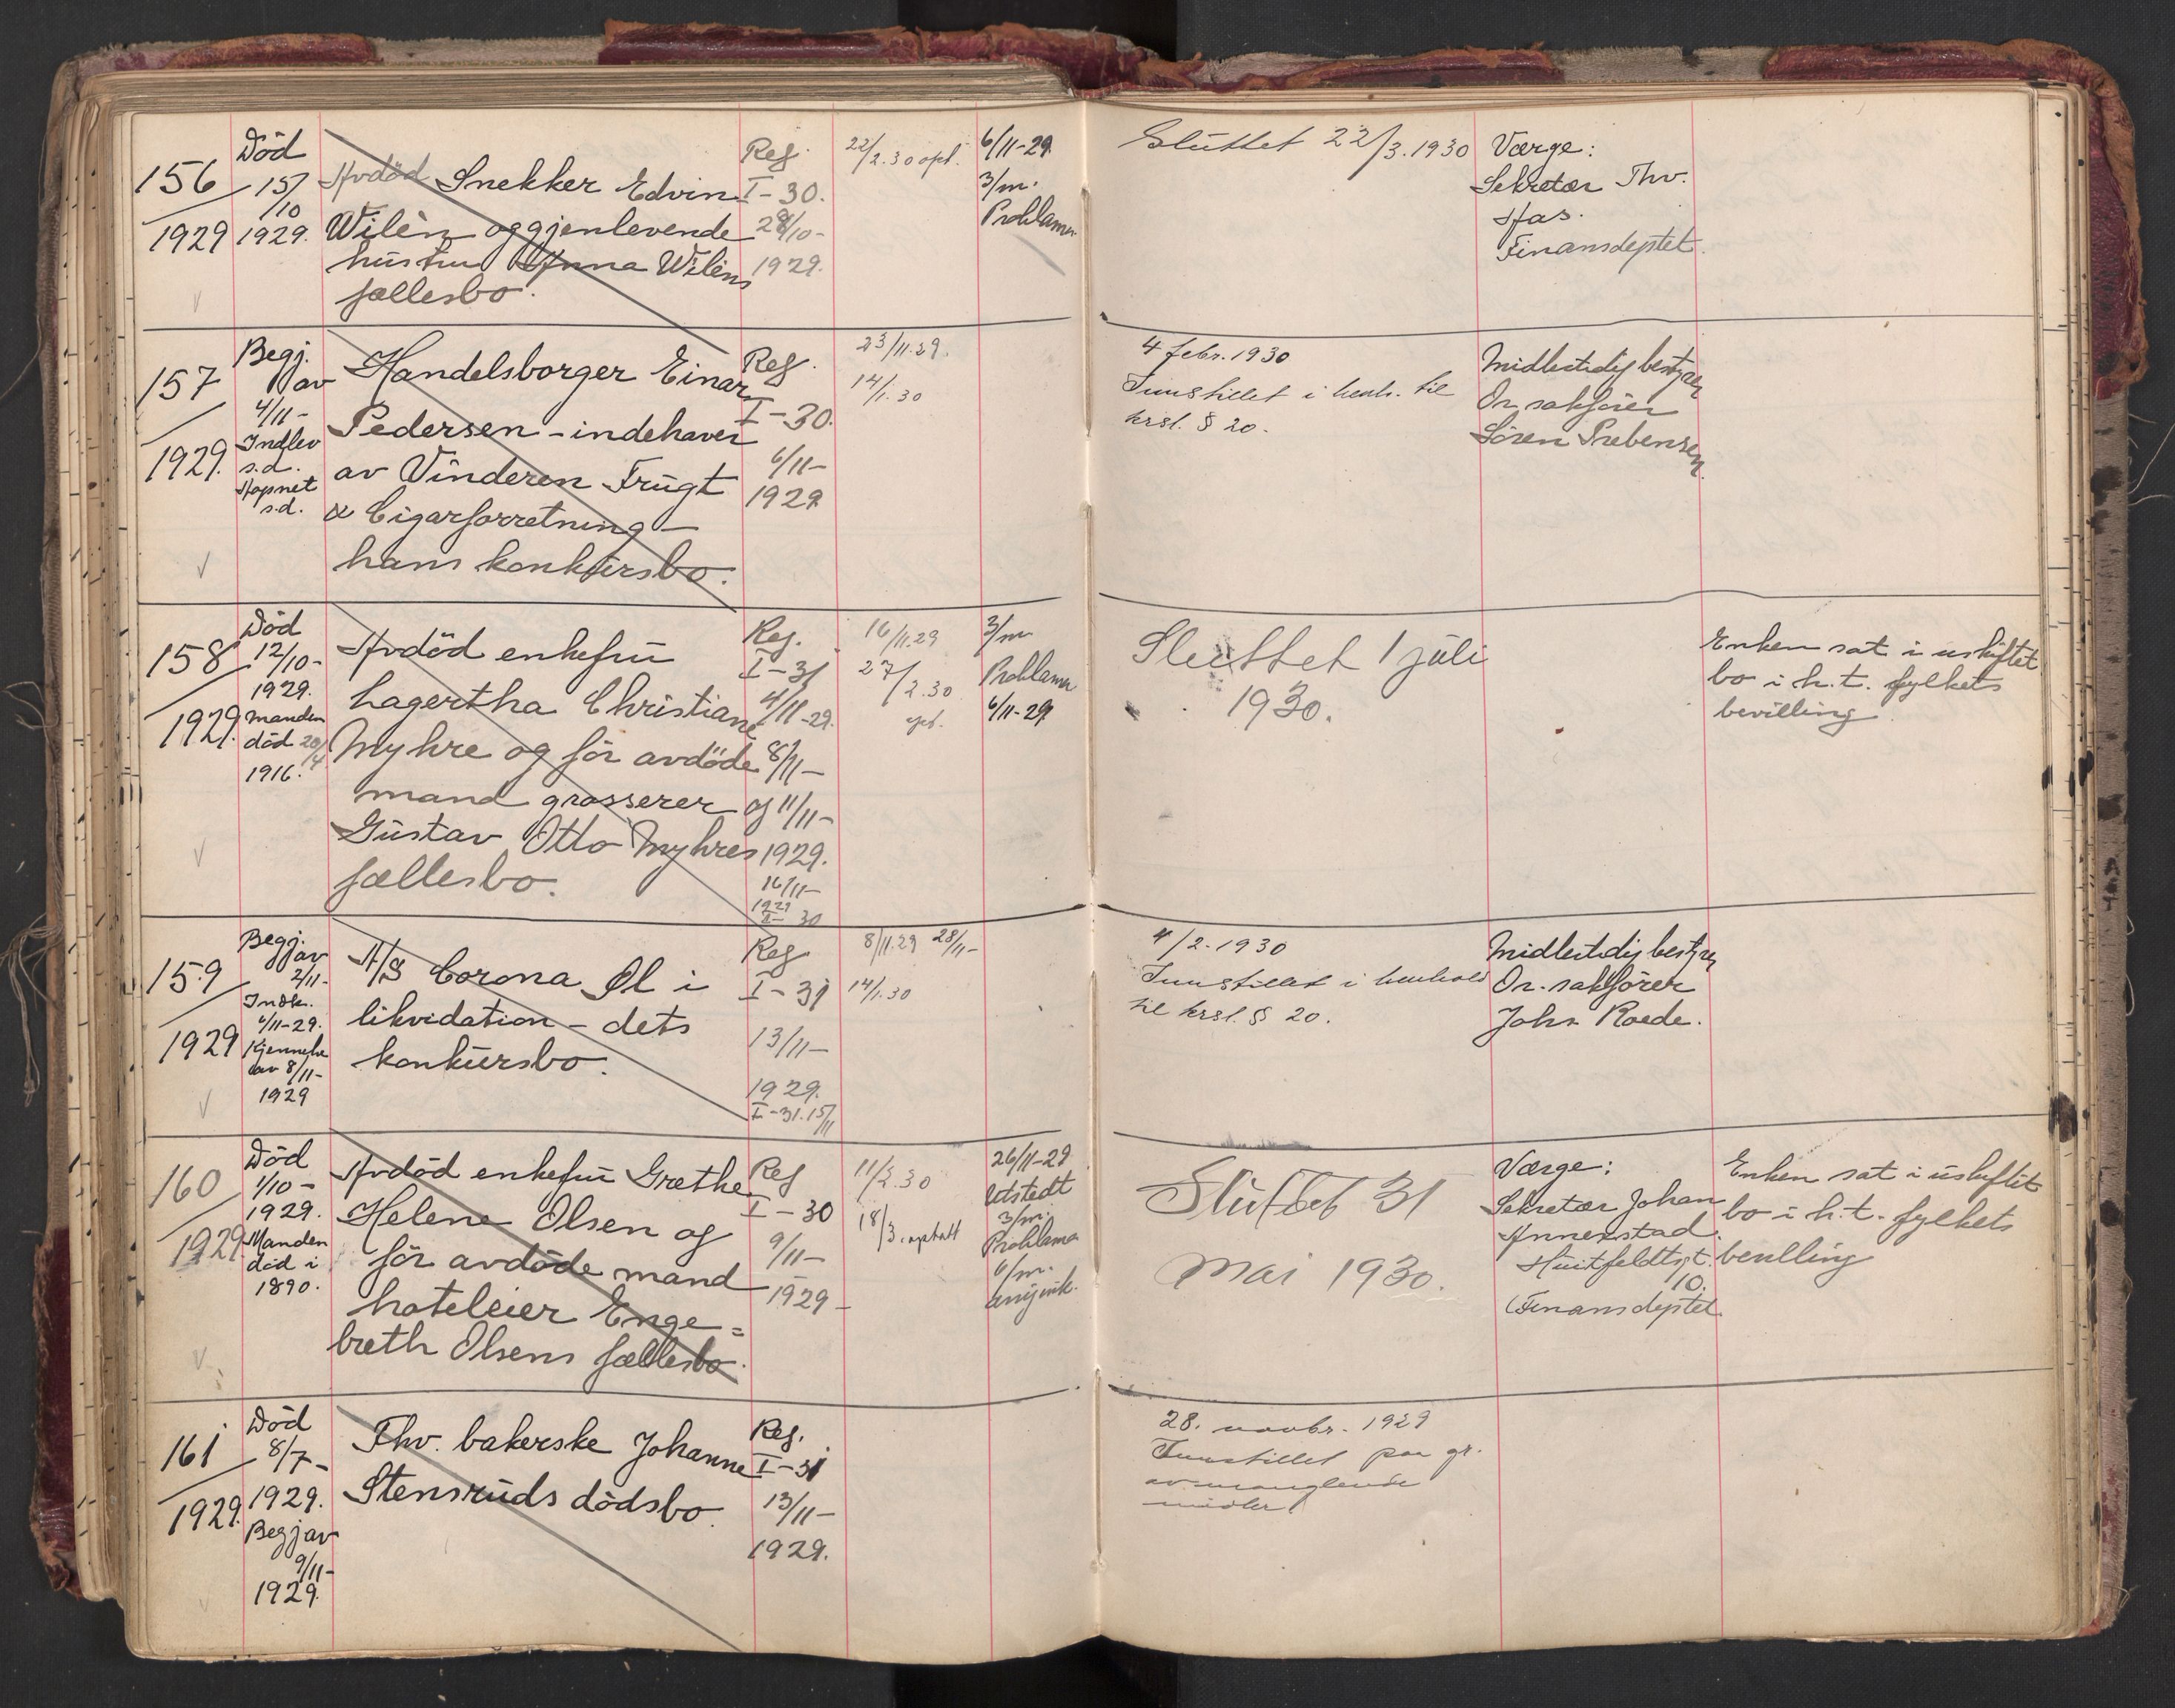 156
1929
Död
15/
/10
1929.
Avdöd Snekker Edvin
Wilèn og gjenlevende
hustru Anna Wilèns
fællesbo.
Reg.
I-30.
29/10-
1929.
22/2.30 opt.
6/11-29.
3/m.
Proklama
Sluttet 22/3.1930
Værge:
Sekretær Thv.
Aas.
Finansdeptet.
157
1929.
Begj.
av
4/11-
Indlev
s.d.
Aapnet
s.d.
Handelsborger Einar
Pedersen - indehaver
av Vinderen Frugt
& Cigarforretning -
hans konkursbo.
Reg.
I-30.
6/11-
1929
23/11.29.
14/1.30
4 febr. 1930
Innstillet i henh. til
krsl. § 20.
Midlertidig bestyrer
Or. sakfører
Sören Prebensen
158
1929.
Död
12/10-
1929.
Manden
död 20/4
1916.
Avdöd enkefru
Lagertha Christiane
Myhre og för avdöde
mand grosserer
Gustav Otto Myhres
fællesbo.
Reg.
I-31
4/11-29.
8/11-
og 11/11-
1929.
16/11-
1929
II- 30
16/11.29
27/2.30
opt.
3/m
Proklama
6/11-29.
Sluttet 1 juli
1930.
Enken sat i uskiftet
bo i h.t. fylkets
bevilling
159
1929
Begj.
av
2/11-
Indk.
6/11-29.
Kjennelse
av 8/11-
1929
A/S Corona Øl i
likvidation - dets
konkursbo.
Reg
I-31
13/11-
1929.
I-31.15/11
8/11.29 28/11-
14/1.30
4/2.1930
Innstillet i henhold
til krsl. § 20.
Midlertidig bestyrer
Or. sakfører
Johs Roede.
160
1929
Död
1/10-
1929.
Manden
död i
1890.
Avdöd enkefru Grethe
Helene Olsen og
för avdöde mand
hoteleier Enge=
breth Olsens fællesbo.
Reg
I-30
9/11-
1929-
11/2.30
18/3. ophatt
26/11-29
Utstedt
3/m.
Proklama
6/m.
Sluttet 31
Mai 1930.
Værge:
Sekretær Johan
Annerstad.
Huitfeldtsgt.
10.
(Finansdeptet.
Enken sat i uskiftet
bo i h.t. fylkets
bevilling
161
1929.
Död
8/7-
1929.
Begj av
9/11-
1929.
Fhv. bakerske Johanne
Stensruds dödsbo.
Reg.
I-31
13/11-
1929.
28. novbr. 1929
Innstillet paa gr.
av manglende
midler.